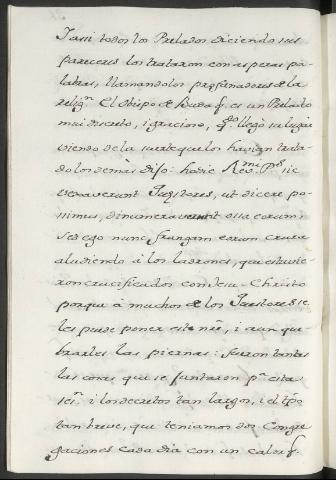 I assi todos los Prelados diciendo sus
pareceres los trataron con asperas pa-
labras, llamandolos profanadores de la
relig.n El Obispo de Buda q.e es un Prelado
mui discreto, i gracioso, q.do llegó su lugar
viendo de la suerte que los havian trata-
do los demàs dijo: hodie Rev.mi P.s sic
vexaverunt Juristores, ut dicere po-
simus, dinumeraverunt ossa eorum,
sed ego nunc frangam eorum crura
aludiendo à los ladrones, que estuvie-
ron crucificados con Jesu-Christo
porque à muchos de los Juristores se
les puede poner este nre, i aun que-
brarles las piernas: fueron tantas
las cosas que se juntaron p.a esta
ses.n i los decretos tan largos, i el tpo
tan breve, que teniamos dos Congre
gaciones cada dia con un calor q.e